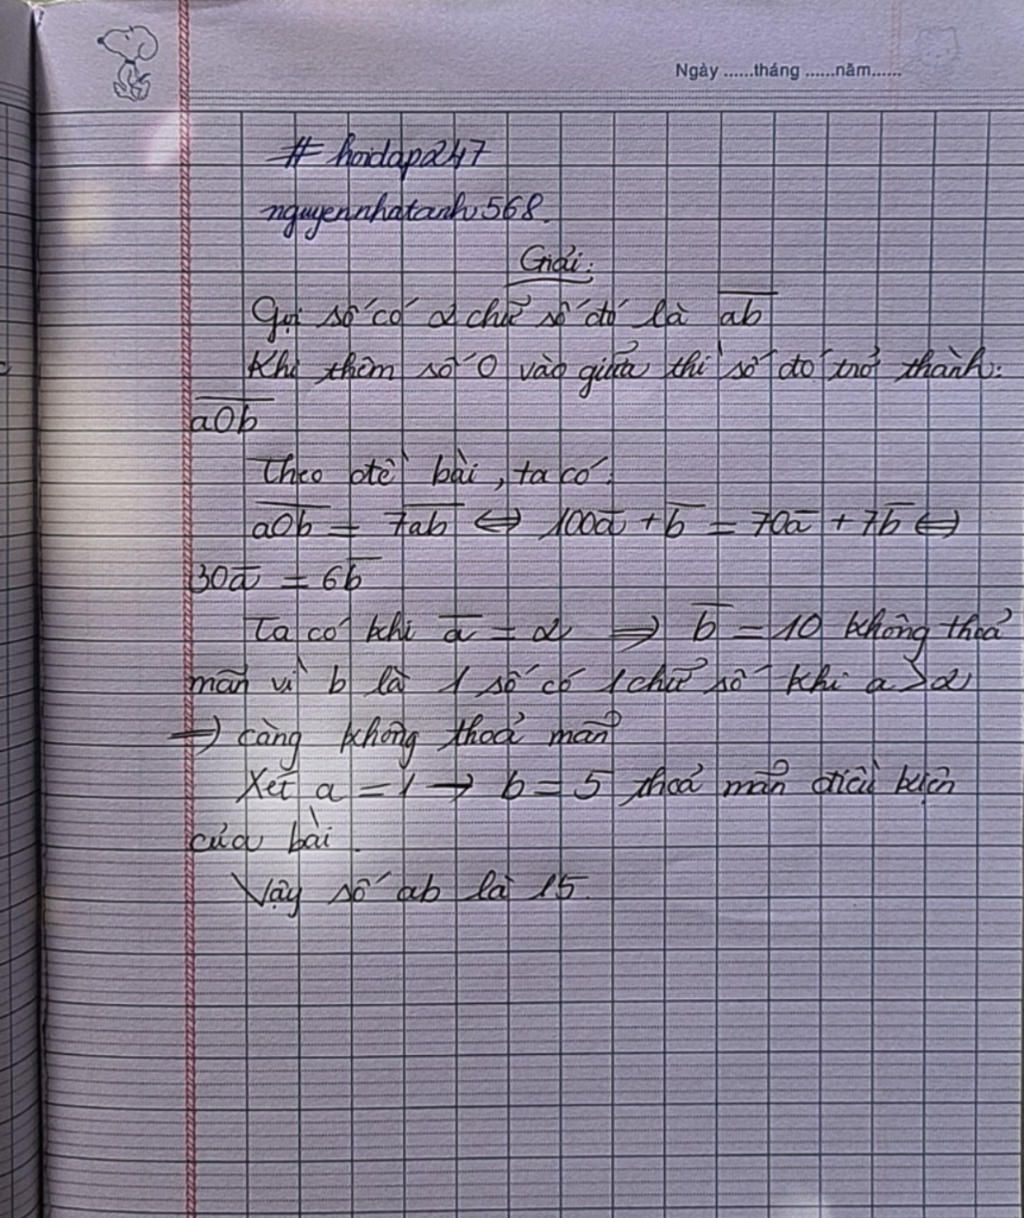 Ngày ......tháng ......năm......
# hoidap247
nguyennhatanh568.
Giải:
Gọi số có 2 chữ số đó là \overline{ab}
Khi thêm số 0 vào giữa thì số đó trở thành:
\overline{a0b}
Theo đề bài, ta có:
\overline{a0b} = \overline{7ab} ⇔ 100\overline{a} + \overline{b} = 70\overline{a} + 7\overline{b} ⇔
30\overline{a} = 6\overline{b}
Ta có khi \overline{a} = 2 ⇒ \overline{b} = 10 không thoả
mãn vì b là 1 số có 1 chữ số khi a > 2
⇒ càng không thoả mãn
Xét a = 1 → b = 5 thoả mãn điều kiện
của bài.
Vậy số ab là 15.